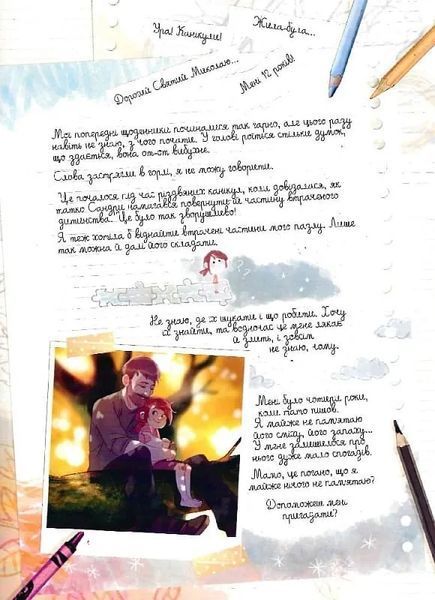 Ура! Канікули!
Жила-була...
Дорогий Святий Миколаю...
Мені 12 років!
Мої попередні щоденники починалися так гарно, але цього разу
навіть не знаю, з чого почати. У голові роїться стільки думок,
що здається, вона от-от вибухне.
Слова застрягли в горлі, я не можу говорити.
Це почалося під час різдвяних канікул, коли довідалася, як
татко Сандри намагався повернути їй частину втраченого
дитинства. Це було так зворушливо!
Я теж хотіла б віднайти втрачені частини мого пазлу. Лише
так можна й далі його складати.
Не знаю, де їх шукати і що робити. Хочу
їх знайти, та водночас це мене лякає
й злить, і зовсім
не знаю, чому.
Мені було чотири роки,
коли тато пішов.
Я майже не пам'ятаю
його сміху, його запаху...
У мене залишилося про
нього дуже мало спогадів.
Мамо, це погано, що я
майже нічого не пам'ятаю?
Допоможеш мені
пригадати?